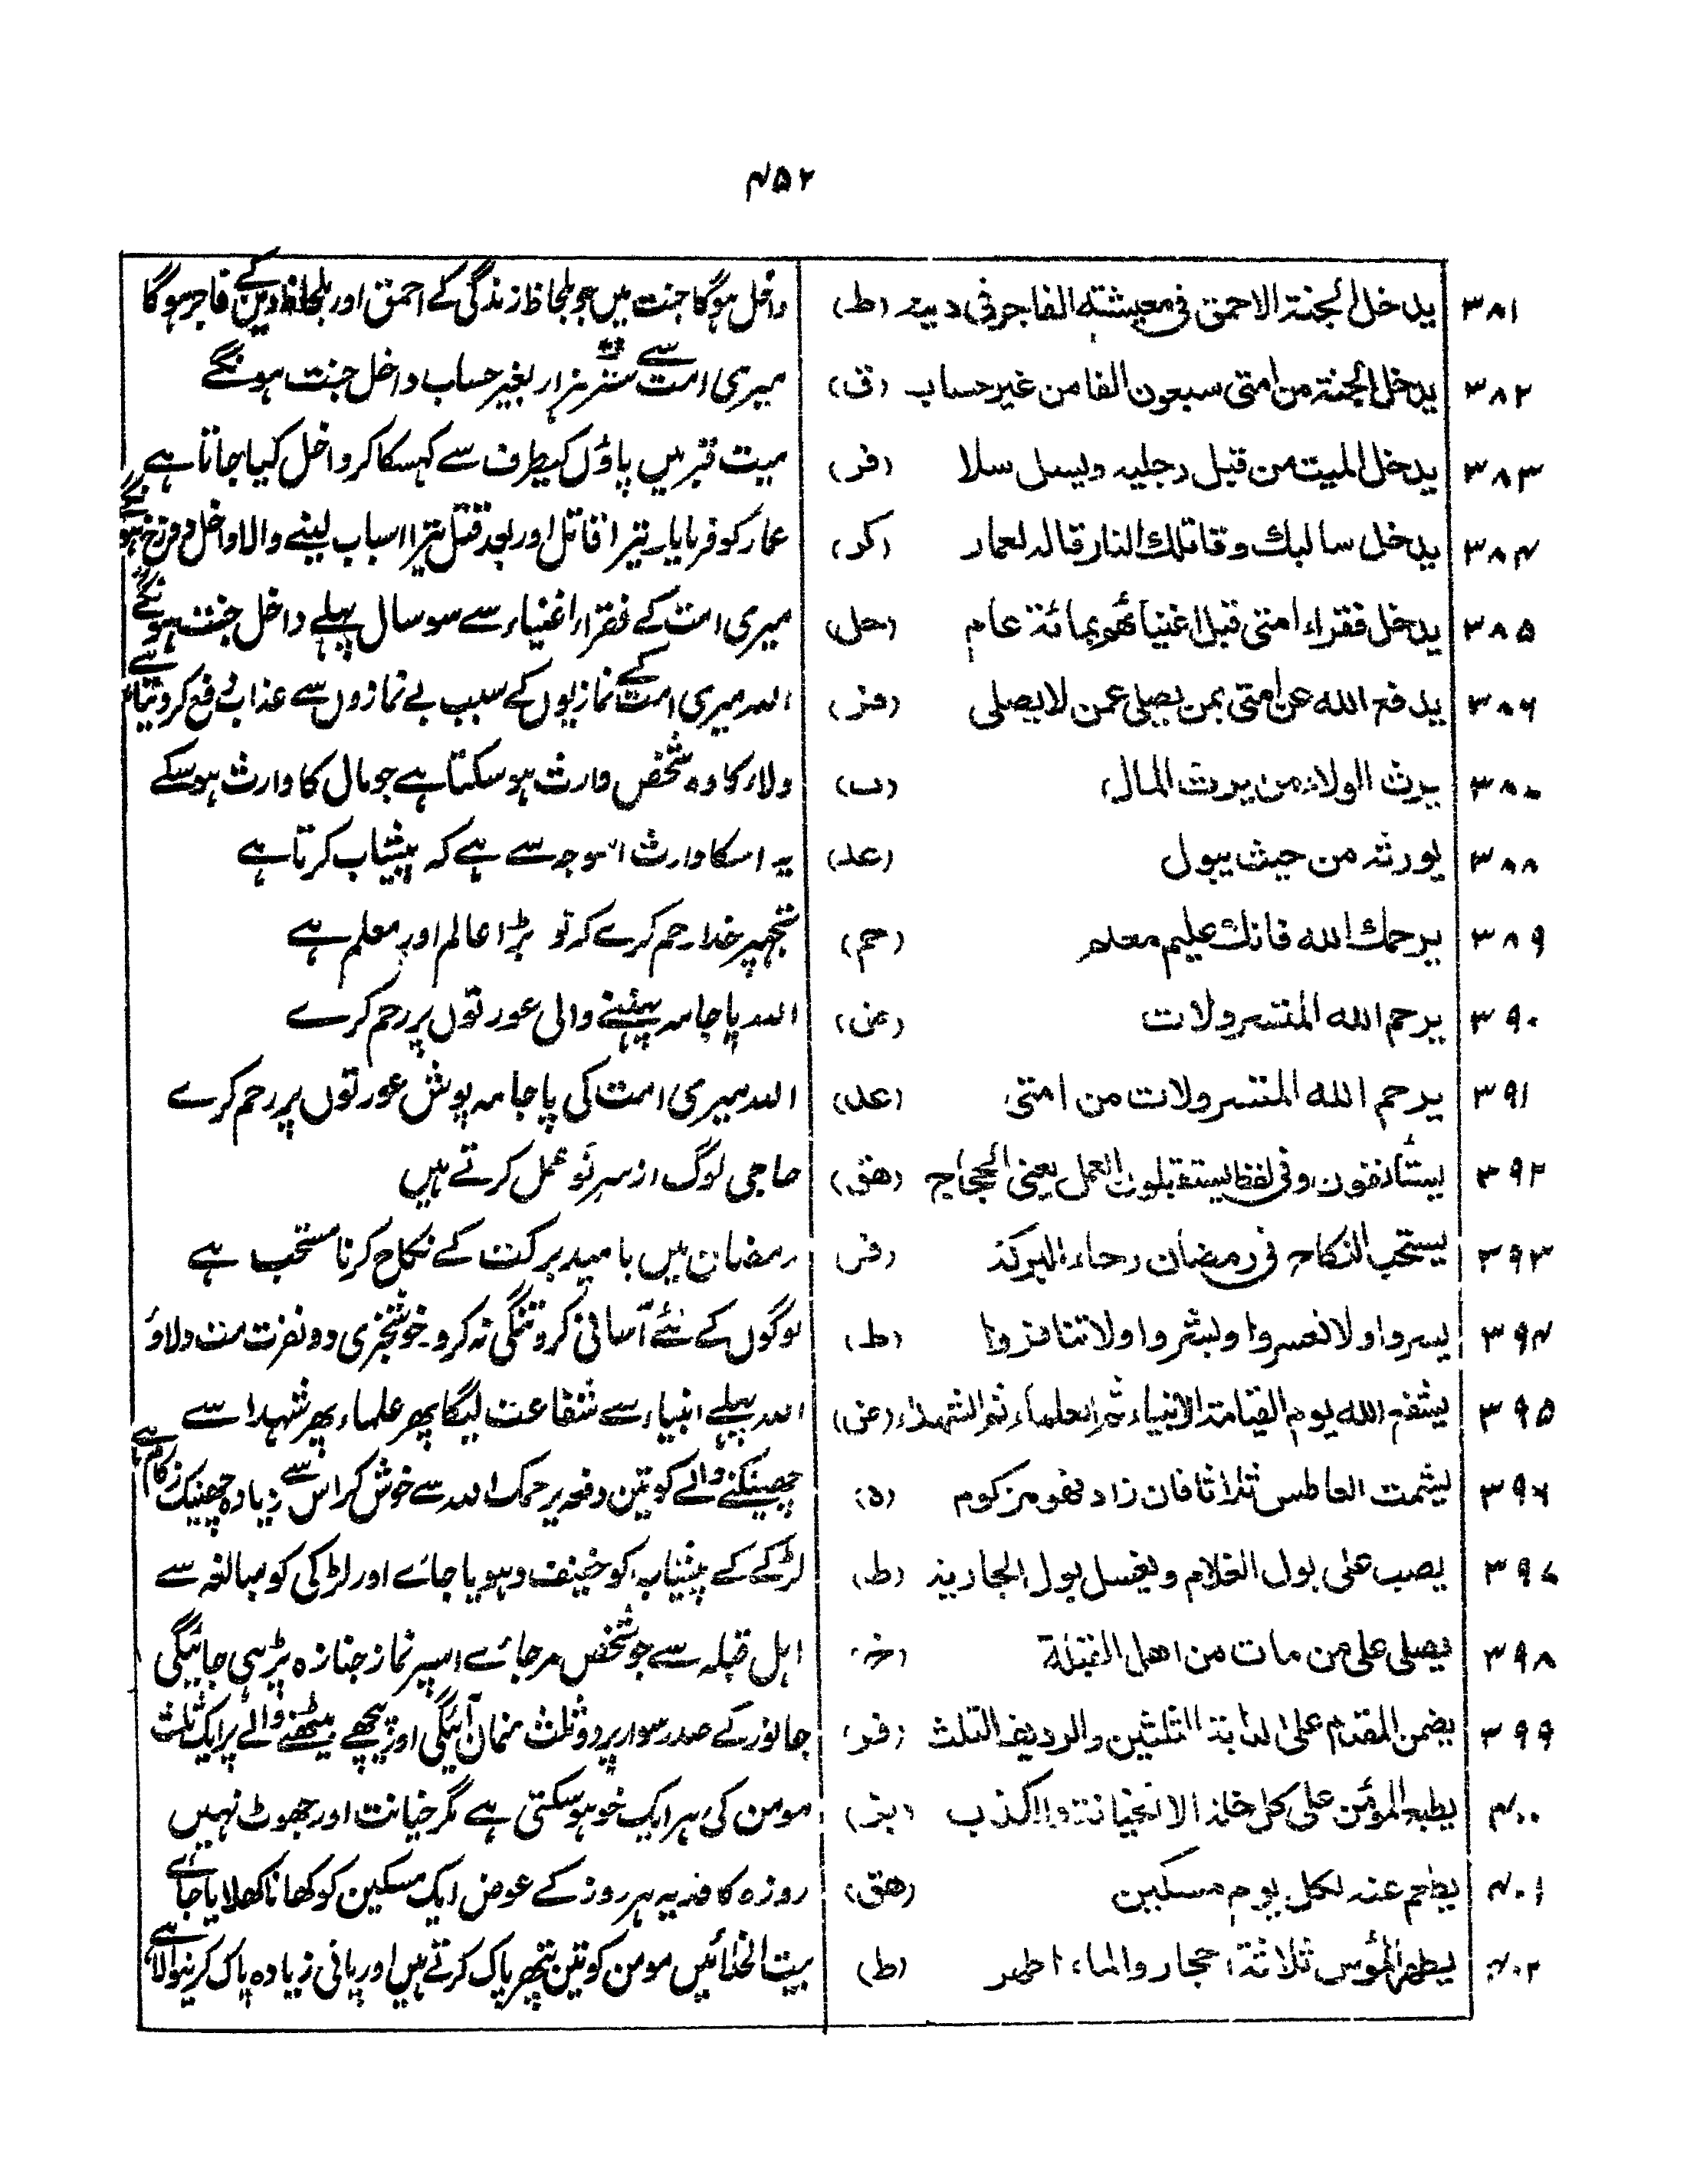 ۴۵۲
۳۸۱ يدخل الجنة الاحمق فى معيشته الفاجر فى دينه (ط) داخل ہوگا جنت میں جو بلحاظ زندگی کے احمق اور بلحاظ دین کے فاجر ہوگا
۳۸۲ يدخل الجنة من امتى سبعون الفا من غير حساب (ق) میری امت سے ستر ہزار بغیر حساب داخل جنت ہونگے
۳۸۳ يدخل الميت من قبل رجليه ويسل سلا (فر) میت قبر میں پاؤں کیطرف سے کہسکا کر داخل کیا جاتا ہے
۳۸۴ يدخل سالبك وقاتلك النار قاله لعمار (كر) عمار کو فرمایا۔ تیرا قاتل اور بعد قتل تیرا اسباب لینے والا داخل دوزخ ہونگے
۳۸۵ يدخل فقراء امتى قبل اغنيائهم بمائة عام (حل) میری امت کے فقراء اغنیاء سے سو سال پہلے داخل جنت ہونگے
۳۸۶ يدفع الله عن امتى بمن يصلى عمن لا يصلى (فر) اللہ میری امت کے نمازیوں کے سبب بے نمازوں سے عذاب دفع کر دیتا ہے
۳۸۷ يرث الولاء من يرث المال (ب) ولاء کا وہ شخص وارث ہو سکتا ہے جو مال کا وارث ہو سکے
۳۸۸ يورثه من حيث يبول (عد) یہ اسکا وارث اسوجہ سے ہے کہ پیشاب کرتا ہے
۳۸۹ يرحمك الله فانك عليم معلم (حم) تجہپر خدا رحم کرے کہ تو بڑا عالم اور معلم ہے
۳۹۰ يرحم الله المتسرولات (عق) اللہ پاجامہ پہننے والی عورتوں پر رحم کرے
۳۹۱ يرحم الله المتسرولات من امتى (عد) اللہ میری امت کی پاجامہ پوش عورتوں پر رحم کرے
۳۹۲ يستأنفون وفى لفظ يستقبلون العمل يعنى الحجاج (هق) حاجی لوگ ازسرِنَو عمل کرتے ہیں
۳۹۳ يستحب النكاح فى رمضان رجاء البركة (فر) رمضان میں بامید برکت کے نکاح کرنا مستحب ہے
۳۹۴ يسروا ولا تعسروا وبشروا ولا تنافروا (ط) لوگوں کے لئے آسانی کرو تنگی نہ کرو۔ خوشخبری دو نفرت مت دلاؤ
۳۹۵ يشفع الله يوم القيامة الانبياء ثم العلماء ثم الشهداء (عق) اللہ پہلے انبیاء سے شفاعت لیگا پھر علماء پھر شہدا سے
۳۹۶ يشمت العاطس ثلاثا فان زاد فهو مزكوم (ه) چھینکنے والے کو تین دفعہ یرحمک اللہ سے خوش کر اس سے زیادہ چھینک زکام ہے
۳۹۷ يصب على بول الغلام ويغسل بول الجارية (ط) لڑکے کے پیشاب کو خفیف دہویا جائے اور لڑکی کو مبالغہ سے
۳۹۸ يصلى على من مات من اهل القبلة (خ) اہل قبلہ سے جو شخص مر جائے اسپر نماز جنازہ پڑہی جائیگی
۳۹۹ يضمن المقدم على الدابة الثلثين والرديف الثلث (فر) جانور کے صدر سوار پر دو ثلث ضمان آئیگی اور پیچھے بیٹھنے والے پر ایک ثلث
۴۰۰ يطبع المؤمن على كل خلة الا الخيانة والكذب (بز) مومن کی ہر ایک خو ہو سکتی ہے مگر خیانت اور جھوٹ نہیں
۴۰۱ يطعم عنه لكل يوم مسكين (هق) روزہ کا فدیہ ہر روز کے عوض ایک مسکین کو کھانا کھلایا جائے
۴۰۲ يطهر المؤمن ثلاثة احجار والماء اطهر (ط) بیت الخلا میں مومن کو تین پتھر پاک کرتے ہیں اور پانی زیادہ پاک کرنیوالا ہے